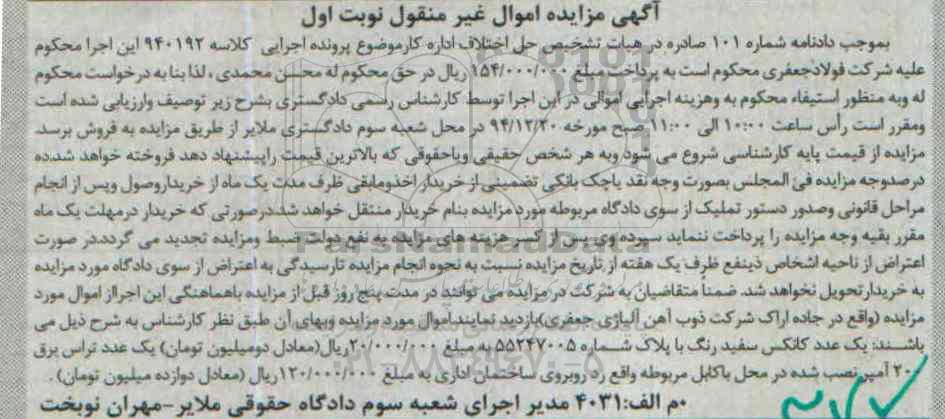 آگهی مزایده اموال غیر منقول نوبت اول
بموجب دادنامه شماره ۱۰۱ صادره در هیات تشخیص حل اختلاف اداره کارموضوع پرونده اجرایی کلاسه ۹۴۰۱۹۲ این اجرا محکوم
علیه شرکت فولادجعفری محکوم است به پرداخت مبلغ ۱۵۴/۰۰۰/۰۰۰ ریال در حق محکوم له محسن محمدی ، لذا بنا به درخواست محکوم
له وبه منظور استیفاء محکوم به وهزینه اجرایی اموالی در این اجرا توسط کارشناس رسمی دادگستری بشرح زیر توصیف وارزیابی شده است
ومقرر است رأس ساعت ۱۰:۰۰ الی ۱۱:۰۰ صبح مورخه ۹۴/۱۲/۲۰ در محل شعبه سوم دادگستری ملایر از طریق مزایده به فروش برسد.
مزایده از قیمت پایه کارشناسی شروع می شود وبه هر شخص حقیقی ویاحقوقی که بالاترین قیمت راپیشنهاد دهد فروخته خواهد شد.ده
درصدوجه مزایده فی المجلس بصورت وجه نقد یاچک بانکی تضمینی از خریدار اخذومابقی ظرف مدت یک ماه از خریداروصول وپس از انجام
مراحل قانونی وصدور دستور تملیک از سوی دادگاه مربوطه مورد مزایده بنام خریدار منتقل خواهد شد.درصورتی که خریدار درمهلت یک ماه
مقرر بقیه وجه مزایده را پرداخت ننماید سپرده وی پس از کسر هزینه های مزایده به نفع دولت ضبط ومزایده تجدید می گردد.در صورت
اعتراض از ناحیه اشخاص ذینفع ظرف یک هفته از تاریخ مزایده نسبت به نحوه انجام مزایده تارسیدگی به اعتراض از سوی دادگاه مورد مزایده
به خریدارتحویل نخواهد شد. ضمناً متقاضیان به شرکت در مزایده می توانند در مدت پنج روز قبل از مزایده باهماهنگی این اجرااز اموال مورد
مزایده (واقع در جاده اراک شرکت ذوب آهن آلیاژی جعفری)بازدید نمایند.اموال مورد مزایده وبهای آن طبق نظر کارشناس به شرح ذیل می
باشند: یک عدد کانکس سفید رنگ با پلاک شماره ۵۵۲۴۷۰۰۵ به مبلغ ۲۰/۰۰۰/۰۰۰ریال(معادل دومیلیون تومان) یک عدد تراس برق
۲۰ آمپر نصب شده در محل باکابل مربوطه واقع در روبروی ساختمان اداری به مبلغ ۱۲۰/۰۰۰/۰۰۰ریال (معادل دوازده میلیون تومان) .
م الف:۴۰۳۱ مدیر اجرای شعبه سوم دادگاه حقوقی ملایر-مهران نوبخت